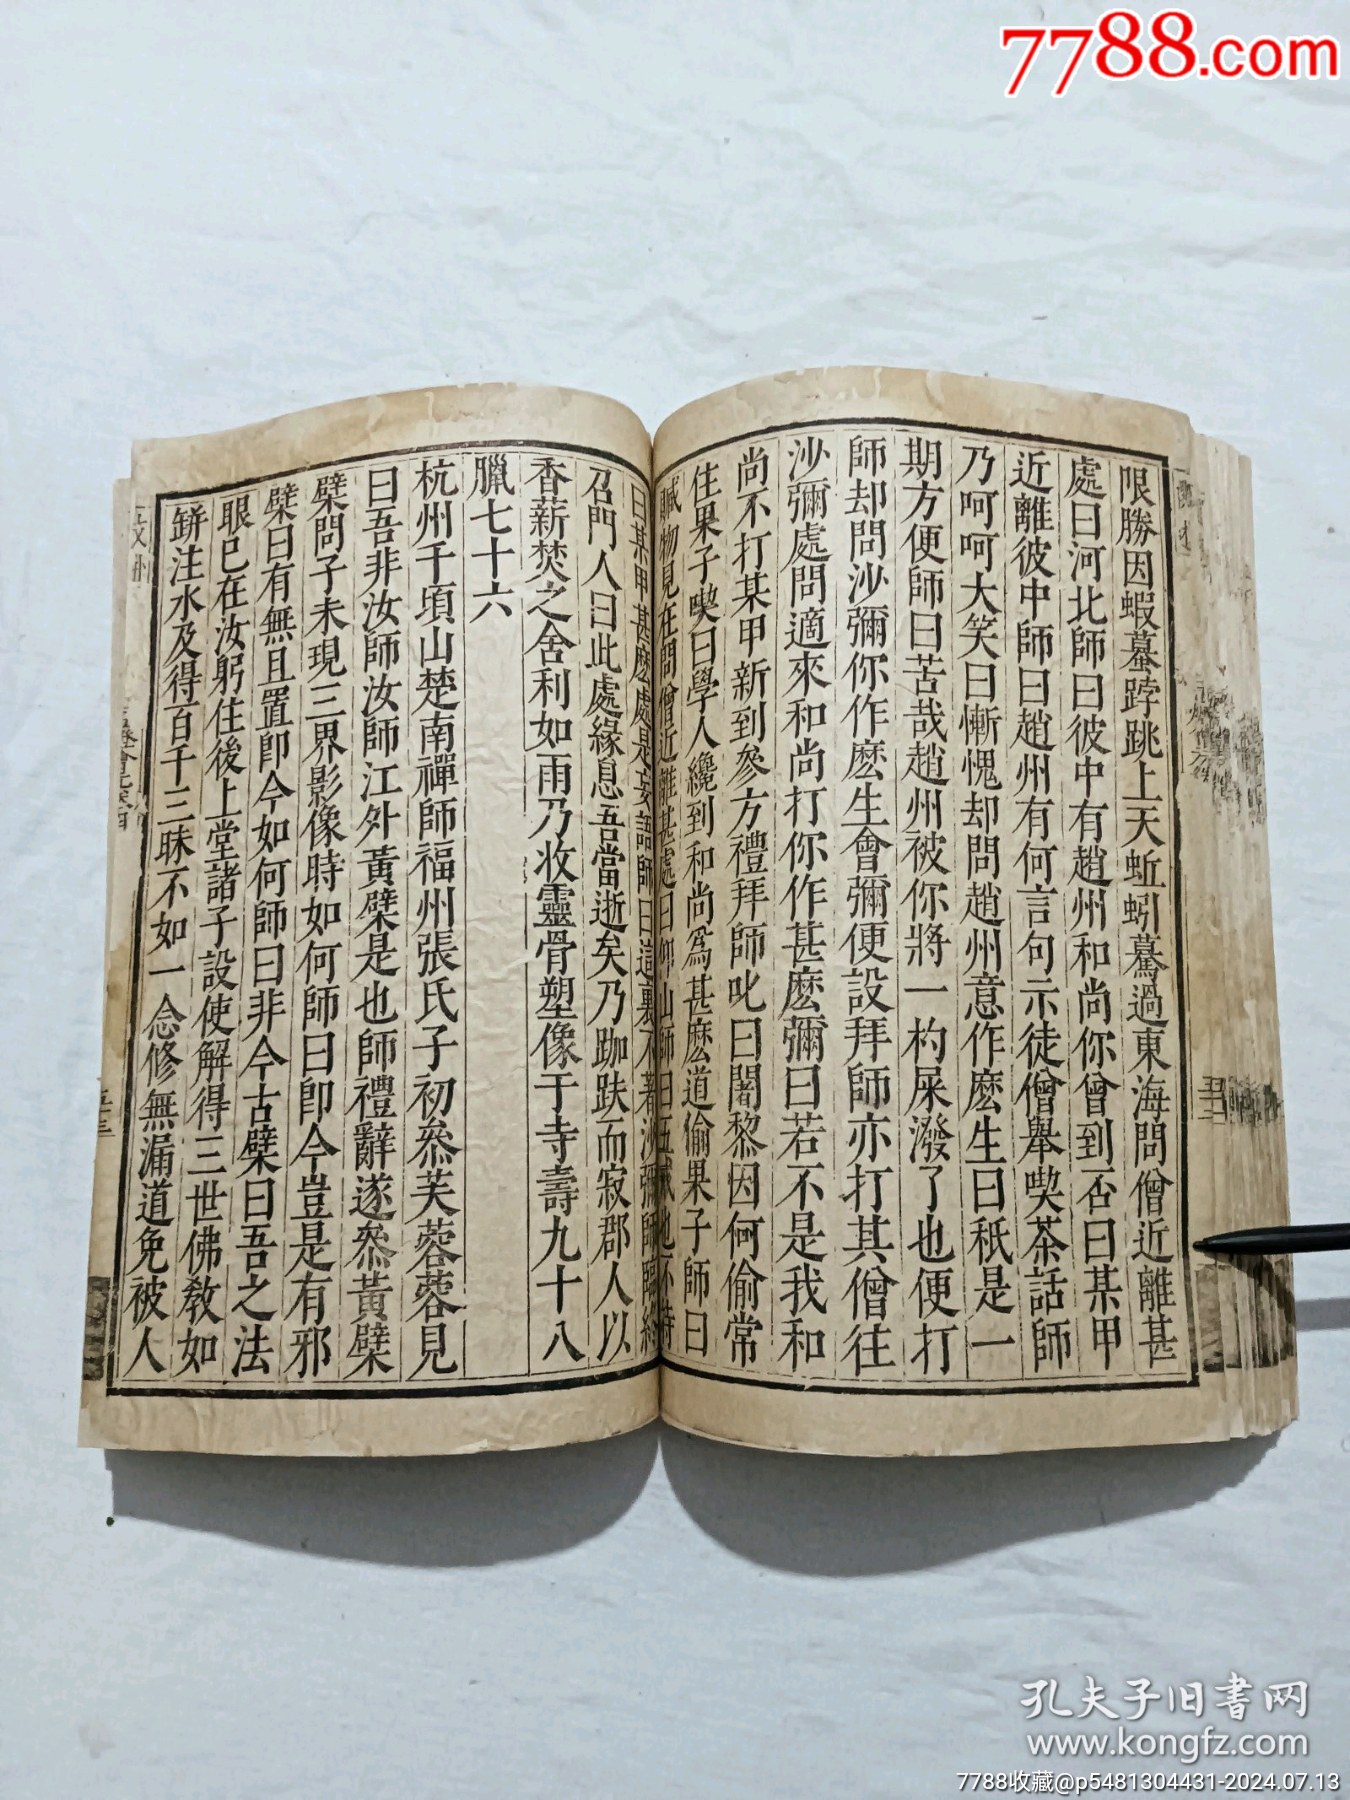 7788.com
限勝因蝦蟇𨁝跳上天蚯蚓驀過東海問僧近離甚
處曰河北師曰彼中有趙州和尚你曾到否曰某甲
近離彼中師曰趙州有何言句示徒僧舉喫茶話師
乃呵呵大笑曰慚愧却問趙州意作麽生曰秖是一
期方便師曰苦哉趙州被你將一杓屎潑了也便打
師却問沙彌你作麽生會彌便設拜師亦打其僧往
沙彌處問適來和尚打你作甚麽彌曰若不是我和
尚不打某甲新到參方禮拜師叱曰闍黎因何偷常
住果子喫曰學人纔到和尚爲甚麽道偷果子師曰
贓物見在問僧近離甚處曰仰山師曰五戒也不持
曰某甲甚麽處是妄語師曰這裏不著沙彌師臨終
召門人曰此處緣息吾當逝矣乃跏趺而寂郡人以
香薪焚之舍利如雨乃收靈骨塑像于寺壽九十八
臘七十六
杭州千頃山楚南禪師福州張氏子初叅芙蓉蓉見
曰吾非汝師汝師江外黃檗是也師禮辭遂叅黃檗
檗問子未現三界影像時如何師曰卽今豈是有邪
檗曰有無且置卽今如何師曰非今古檗曰吾之法
眼已在汝躬住後上堂諸子設使解得三世佛敎如
缾注水及得百千三昧不如一念修無漏道免被人
孔夫子旧書网
www.kongfz.com
7788收藏@p5481304431-2024.07.13